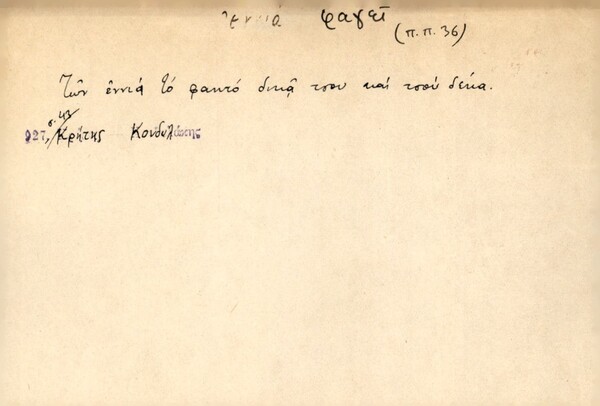 ἐννιά φαγεῖ
(π.π. 36)
Τῶν ἐννιά τό φαητό δικᾷ τσου καί τσοί δέκα.
σ. 43
927, Κρήτης Κονδυλάκης